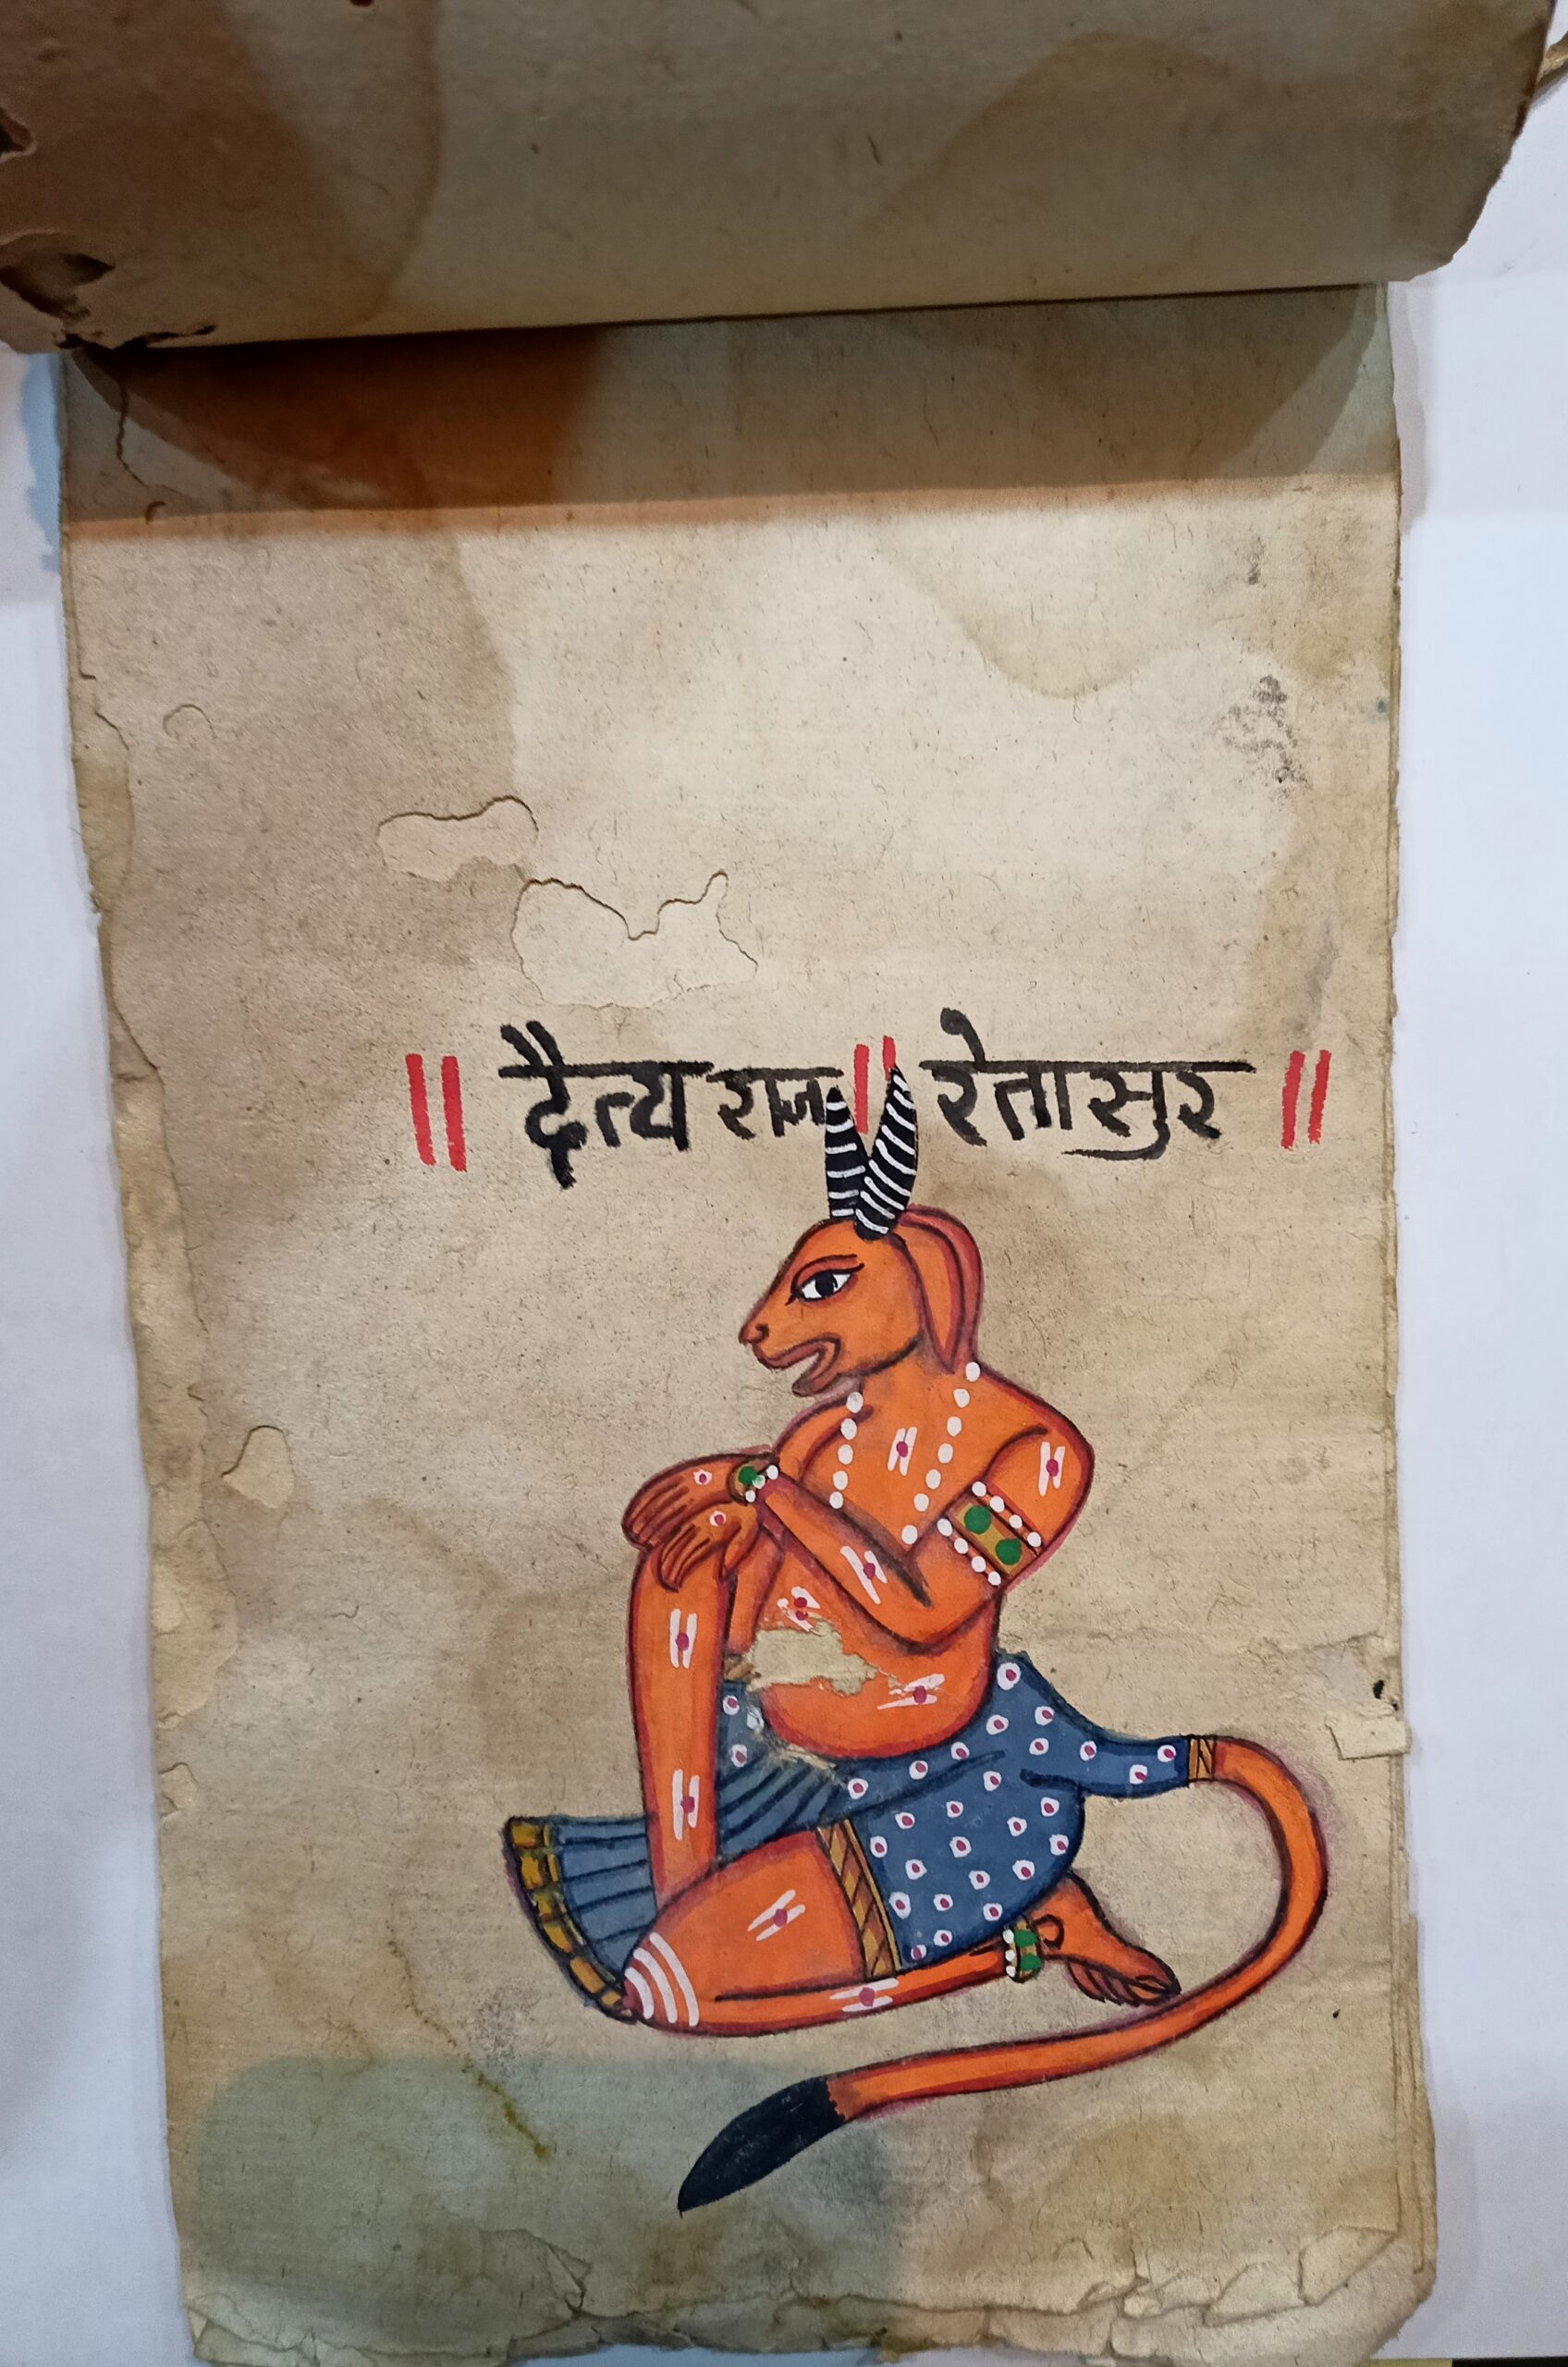 ॥ द्रैत्य राज ॥ रेतासुर ॥